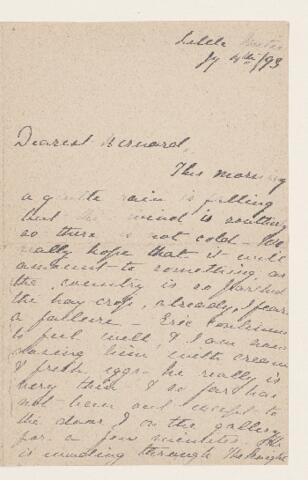 Little
Jy 4th/93
Dearest Bernard,
This morning
a gentle rain is falling
but the wind is southerly
so there is not cold - We
really hope that it will
amount to something, as
the country is so parched
the hay crop, already, I fear,
a failure - Eric continues
to feel well, & I am now
dosing him with cream
& fresh eggs - he really is
very thin & so far has
not been out except to
the door & on the gallery
for a few minutes. He
is wading through